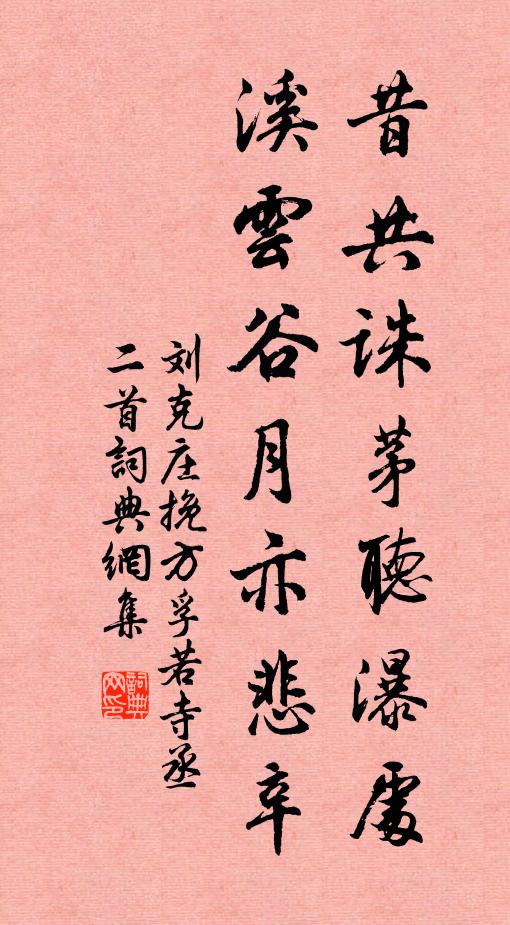 昔共誅茅聽瀑處
溪雲谷月亦悲辛
刘克庄挽方孚若寺丞
二首詞典網集
詞典
网印